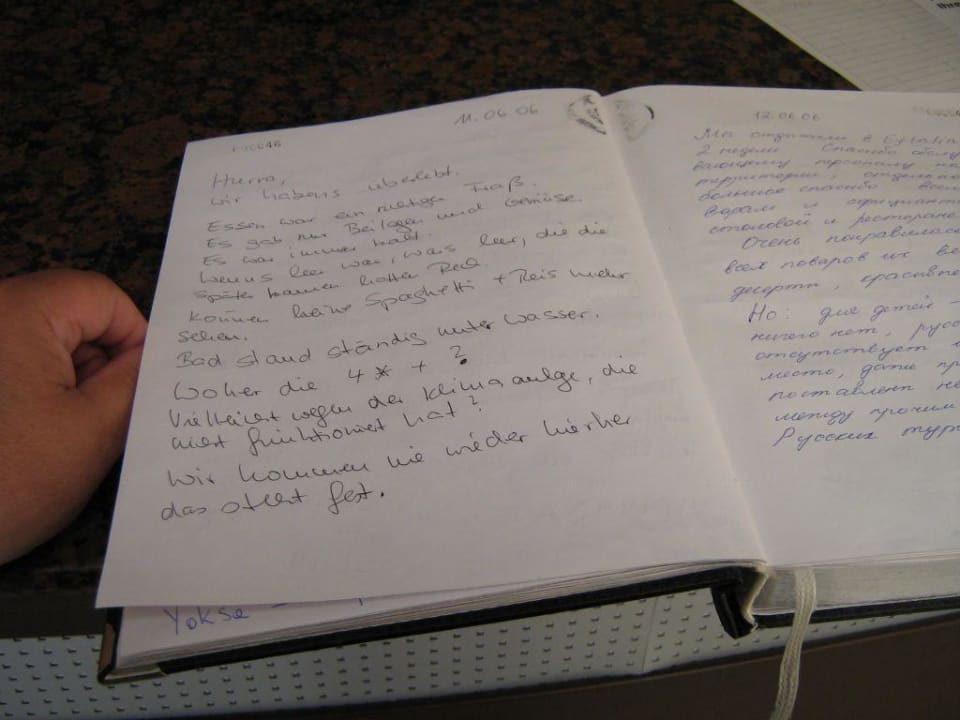 11.06.06
Hurra,
wir habens überlebt.
Essen war ein richtiger Fraß.
Es gab nur Beilagen und Gemüse.
Es war immer kalt.
Wenns leer war, wars leer, die die
später kamen hatten Pech.
Können keine Spaghetti + Reis mehr
sehen.
Bad stand ständig unter Wasser.
Woher die 4 * + ?
Vielleicht wegen der Klimaanlage, die
nicht funktioniert hat?
Wir kommen nie wieder hierher
das steht fest.
Yokse
12.06.06
Мы отдыхали в
2 недели Спасибо обслу
вающему персоналу
территории, отдельн
большое спасибо всем
варам и официант
столовой и ресторане
Очень понравилас
всех поваров их
десерты, красивые
Но: для детей -
ничего нет, русс
отсутствует
место, даже пр
поставлен не
между прочим
Русских тур